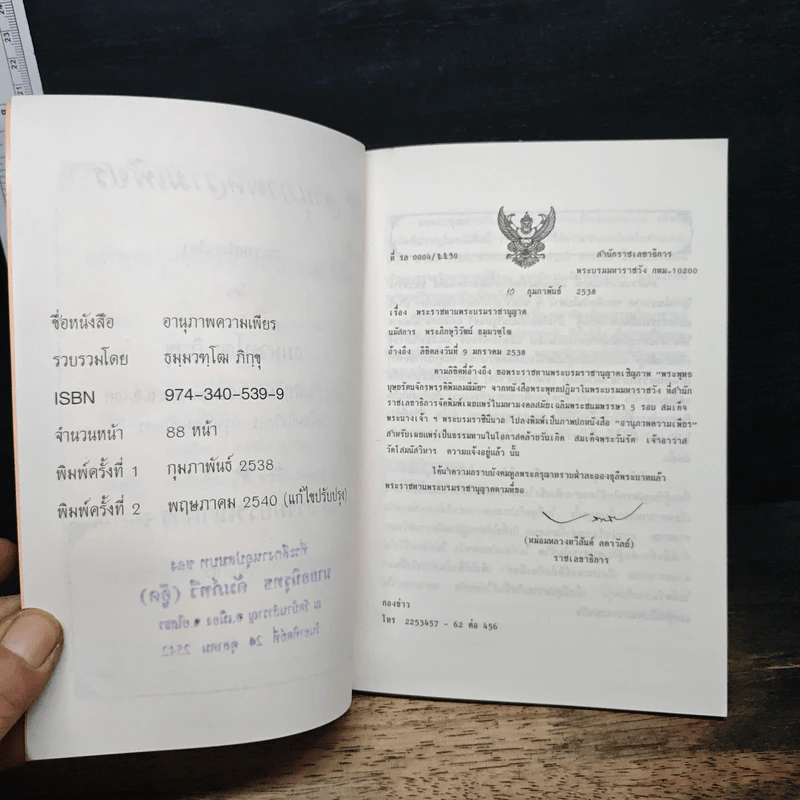 ชื่อหนังสือ อานุภาพความเพียร
รวบรวมโดย ธมฺมวฑฺโฒ ภิกฺขุ
ISBN 974-340-539-9
จำนวนหน้า 88 หน้า
พิมพ์ครั้งที่ 1 กุมภาพันธ์ 2538
พิมพ์ครั้งที่ 2 พฤษภาคม 2540 (แก้ไขปรับปรุง)
ที่ระลึกงานอุปสมบท ของ
ณ วัดบ้านสำราญ อ.เมือง จ.ยโสธร
วันอาทิตย์ที่ 24 ตุลาคม 2542
ที่ รล 0004/
สำนักราชเลขาธิการ
พระบรมมหาราชวัง กทม.10200
10 กุมภาพันธ์ 2538
เรื่อง พระราชทานพระบรมราชานุญาต
นมัสการ พระภิกษุวิวัฒน์ ธมฺมวฑฺโฒ
อ้างถึง ลิขิตลงวันที่ 9 มกราคม 2538
ตามลิขิตที่อ้างถึง ขอพระราชทานพระบรมราชานุญาตเชิญภาพ "พระพุทธ
บุษยรัตนจักรพรรดิพิมลมณีมัย" จากหนังสือพระพุทธปฏิมาในพระบรมมหาราชวัง ที่สำนัก
ราชเลขาธิการจัดพิมพ์เผยแพร่ในมหามงคลสมัยเฉลิมพระชนมพรรษา 5 รอบ สมเด็จ
พระนางเจ้า ฯ พระบรมราชินีนาถ ไปลงพิมพ์เป็นภาพปกหนังสือ "อานุภาพความเพียร"
สำหรับเผยแพร่เป็นธรรมทานในโอกาสคล้ายวันเกิด สมเด็จพระวันรัต เจ้าอาวาส
วัดโสมนัสวิหาร ความแจ้งอยู่แล้ว นั้น
ได้นำความกราบบังคมทูลพระกรุณาทราบฝ่าละอองธุลีพระบาทแล้ว
พระราชทานพระบรมราชานุญาตตามที่ขอ
(หม่อมหลวงทวีสันต์ ลดาวัลย์)
ราชเลขาธิการ
กองข่าว
โทร 2253457 - 62 ต่อ 456